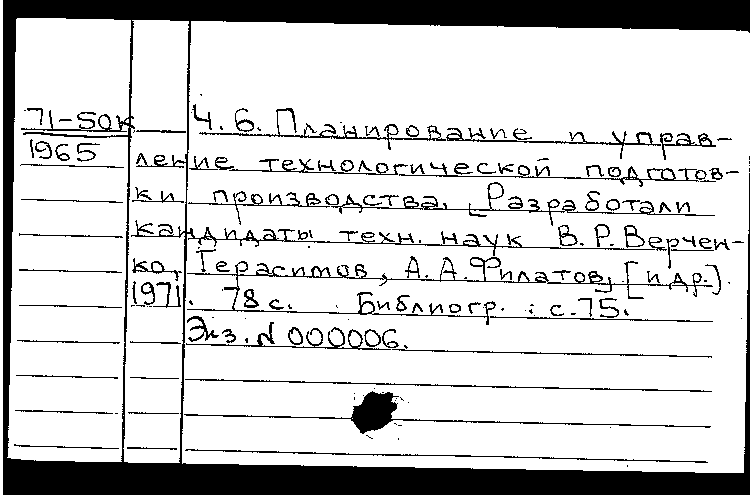 71-50к Ч.6. Планирование и управ-
1965 ление технологической подготов-
ки производства. [Разработали
кандидаты техн. наук В.Р.Верчен-
ко, Герасимов, А.А.Филатов, [и др.].
1971. 78 с. Библиогр.: с.75.
Экз. N 000006.